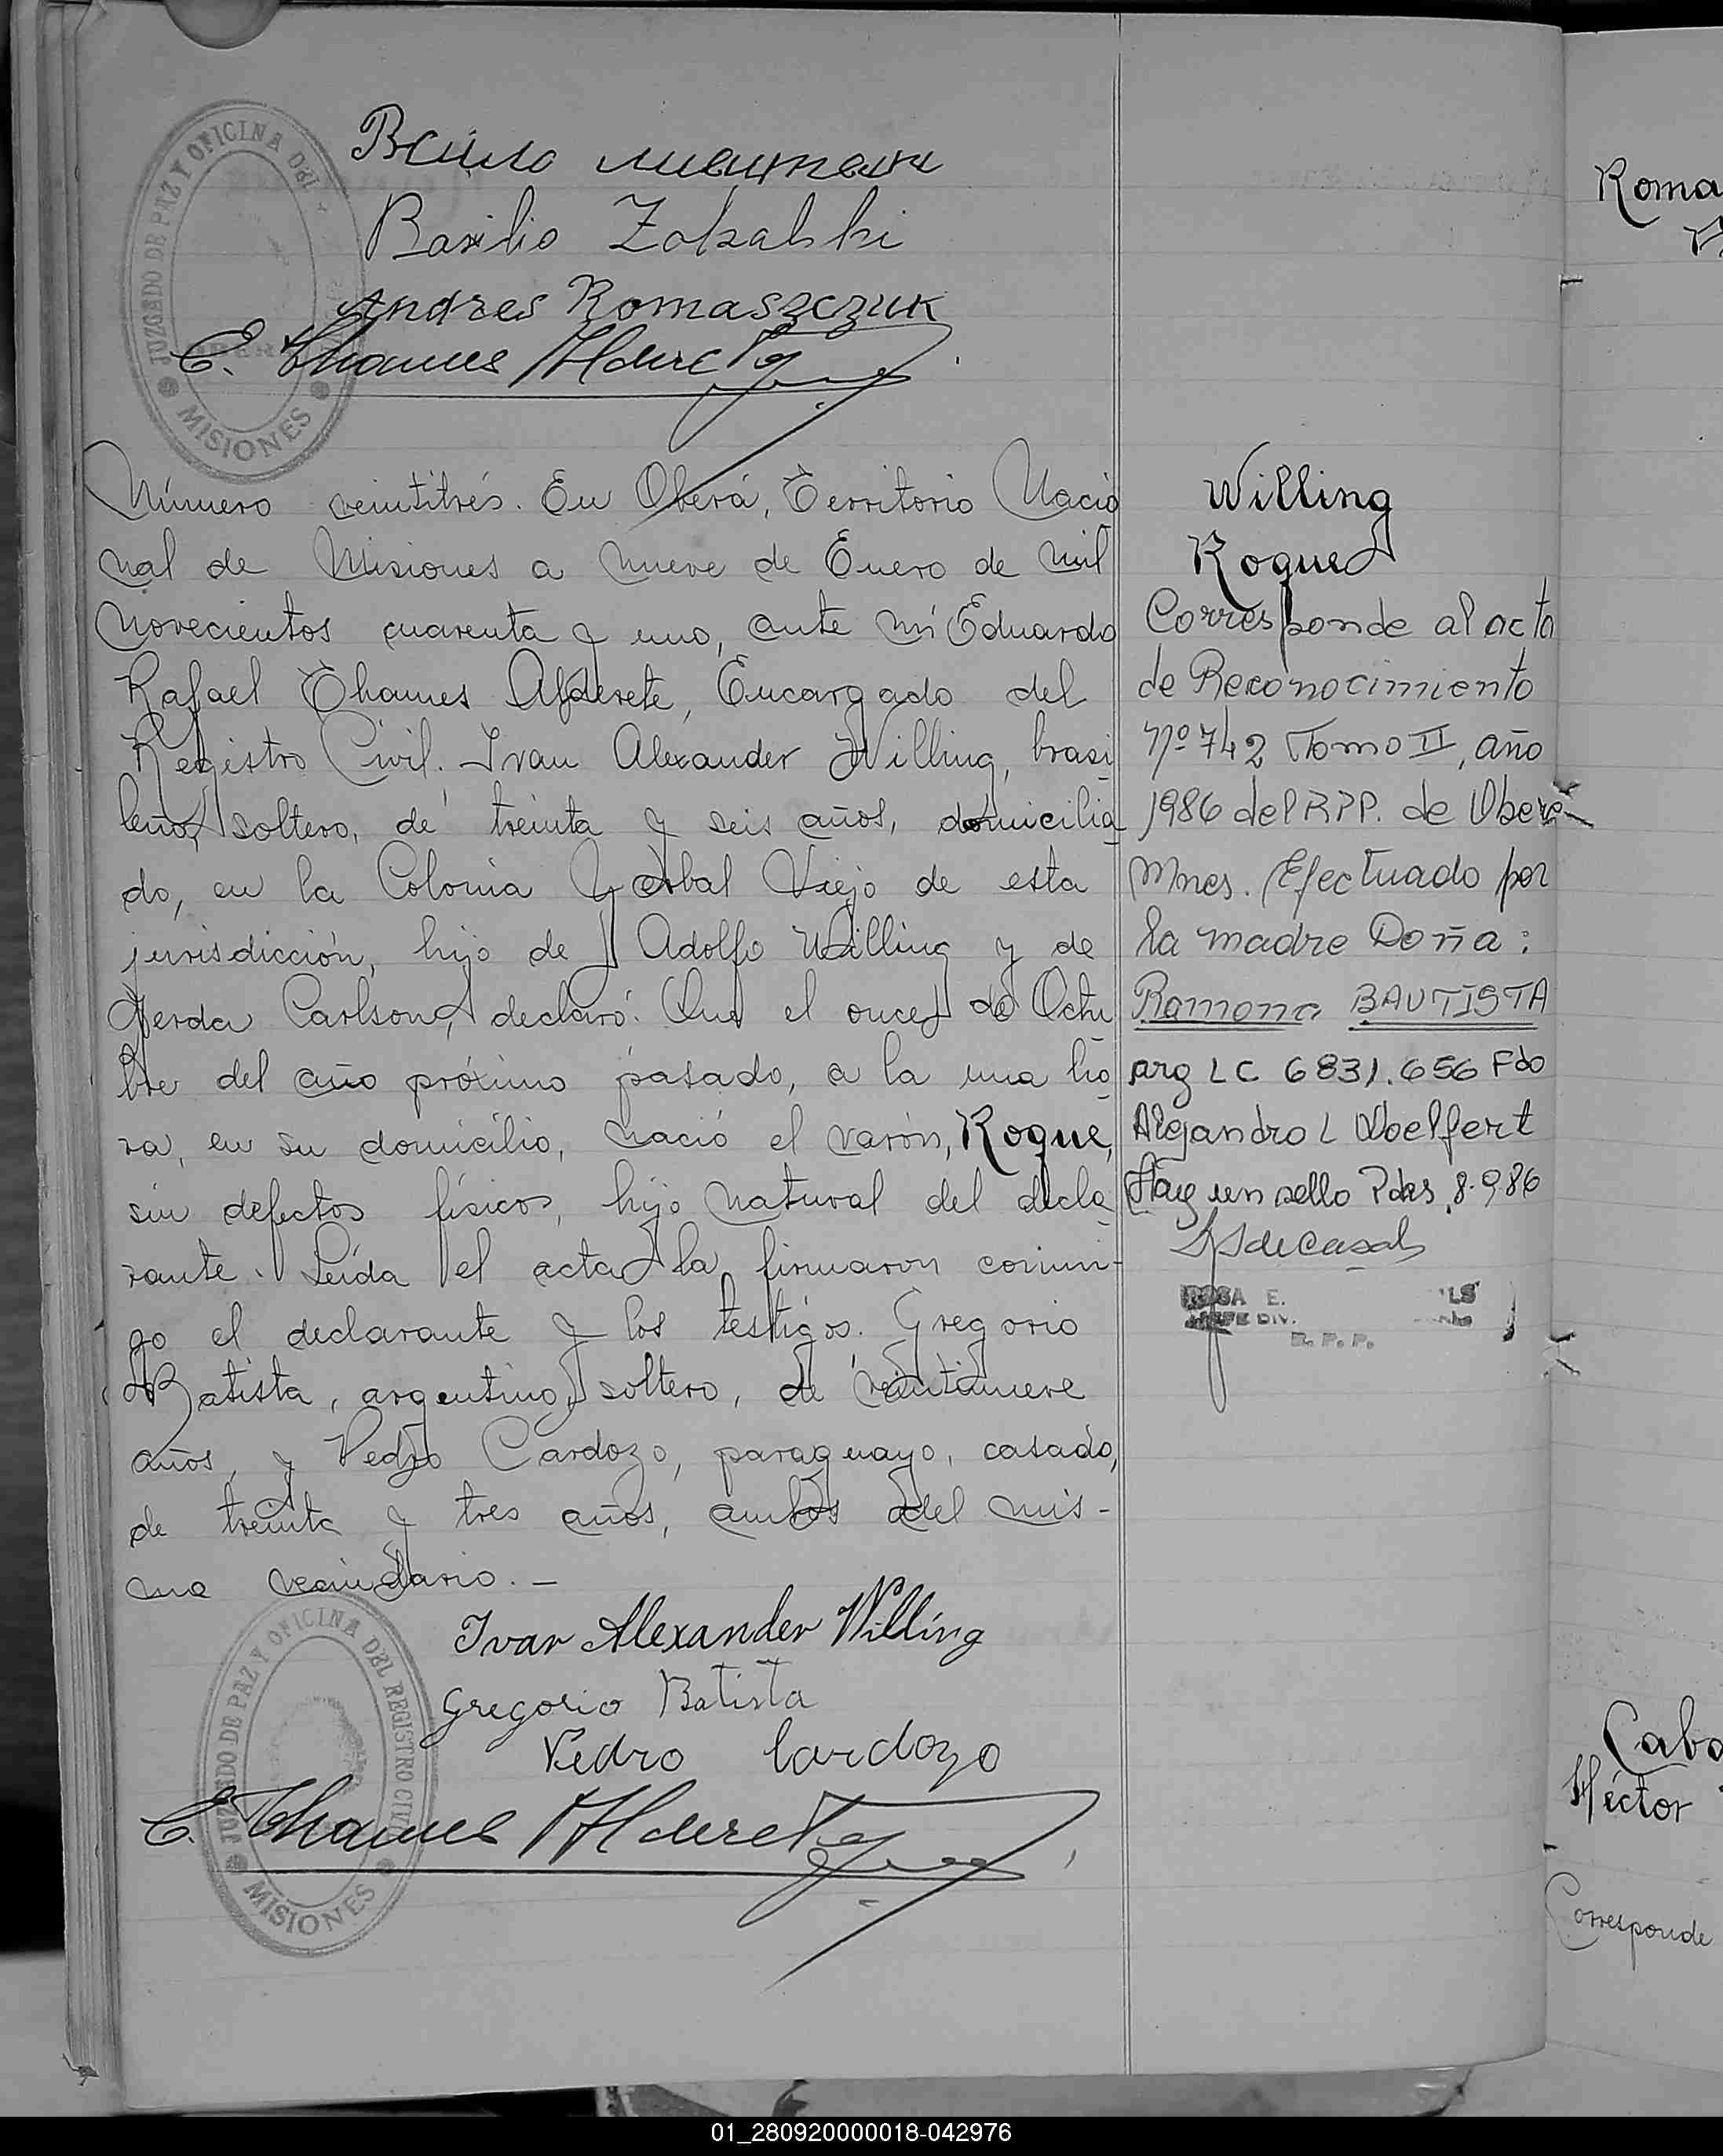 JUZGADO DE PAZ Y OFICINA DEL
MISIONES
Bruno Neumann
Basilio Zokalski
Andres Romaszczuk
E. Thames Alderete
Número veintitrés. En Oberá, Territorio Nacio
nal de Misiones a nueve de Enero de mil
novecientos cuarenta y uno, ante mí Eduardo
Rafael Thames Alderete, Encargado del
Registro Civil. Ivan Alexander Willing, brasi
leño, soltero, de treinta y seis años, domicilia
do, en la Colonia Yerbal Viejo de esta
jurisdicción, hijo de Adolfo Willing y de
Gerda Carlson, declaró: Que el once de Octu
bre del año próximo pasado, a la una ho
ra, en su domicilio, nació el varón, Roque,
sin defectos físicos, hijo natural del decla
rante. Leída el acta la firmaron conmi-
go el declarante y los testigos. Gregorio
Batista, argentino, soltero, de veintinueve
años, y Pedro Cardozo, paraguayo, casado,
de treinta y tres años, ambos del mis-
mo vecindario. —
Ivar Alexander Willing
Gregorio Batista
Pedro Cardozo
E. Thames Alderete
JUZGADO DE PAZ Y OFICINA DEL REGISTRO CIVIL
MISIONES
Willing
Roque
Corresponde al acta
de Reconocimiento
nº 742 Tomo II, año
1986 del RPP. de Oberá
Mnes. Efectuado por
la madre Doña:
Ramona BAUTISTA
arg LC 6831.656 Fdo
Alejandro L Woelfert
Hay un sello Pdas, 8.9.86
ROSA E.
JEFE DIV.
R. P. P.
Roma
Cabo
Héctor
Corresponde
01_280920000018-042976